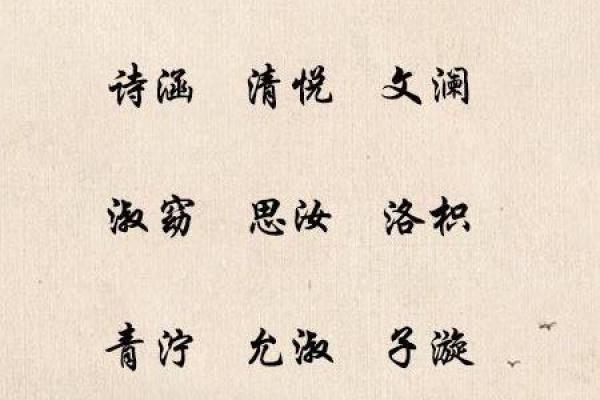 诗涵 清悦 文澜
淑窈 思汝 洛枳
青泞 允淑 子漩